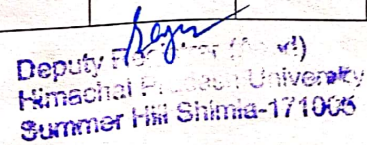 Deputy
Himachal Pradesh University
Summer Hill Shimla-171005